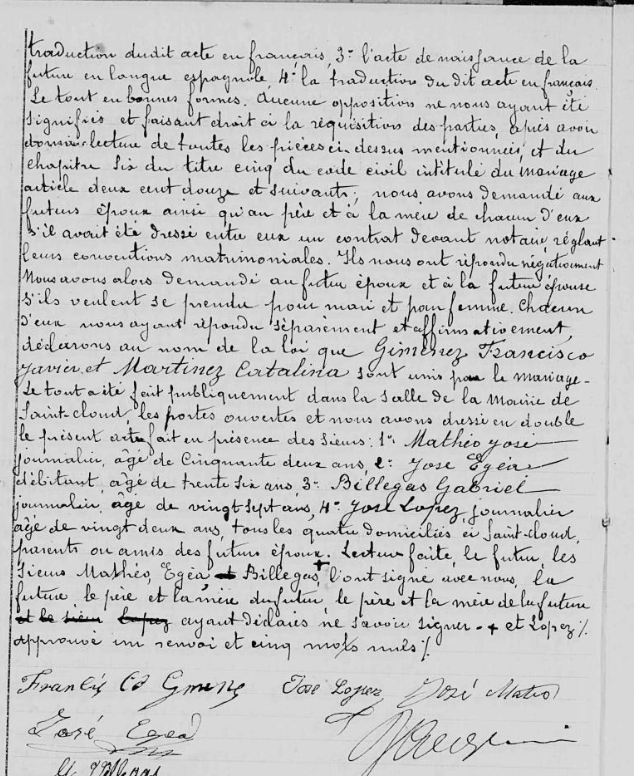 traduction du dit acte en français, 3° l'acte de naissance de la
future en langue espagnole, 4° la traduction du dit acte en français
Le tout en bonnes formes. Aucune opposition ne nous ayant été
signifiée et faisant droit à la réquisition des parties, après avoir
donné lecture de toutes les pièces ci-dessus mentionnées, et du
chapitre six du titre cinq du code civil intitulé du mariage
article deux cent douze et suivants; nous avons demandé aux
futurs époux ainsi qu'au père et à la mère de chacun d'eux
s'il avait été dressé entre eux un contrat devant notaire, réglant
leurs conventions matrimoniales. Ils nous ont répondu négativement
Nous avons alors demandé au futur époux et à la future épouse
s'ils veulent se prendre pour mari et pour femme. Chacun
d'eux nous ayant répondu séparément et affirmativement,
déclarons au nom de la loi que Gimenez Francisco
Javier, et Martinez Catalina sont unis par le mariage -
Le tout a été fait publiquement dans la salle de la Mairie de
Saint-Cloud les portes ouvertes et nous avons dressé en double
le présent acte fait en présence des Sieurs: 1° Mathéo José
journalier, âgé de Cinquante deux ans, 2° Jose Egéa
débitant, âgé de trente six ans, 3° Billegas Gabriel
journalier, âgé de vingt sept ans, 4° José Lopez, journalier
âgé de vingt deux ans, tous les quatre domiciliés à Saint-Cloud,
parents ou amis des futurs époux. Lecture faite, le futur, les
Sieurs Mathéo, Egéa, et Billegas + l'ont signé avec nous, la
future le père et la mère du futur, le père et la mère de la future
et le sieur Lopez ayant déclaré ne savoir signer. + et Lopez ⁒
approuvé un renvoi et cinq mots nuls ⁒
Jose Lopez José Mateo
José Egea